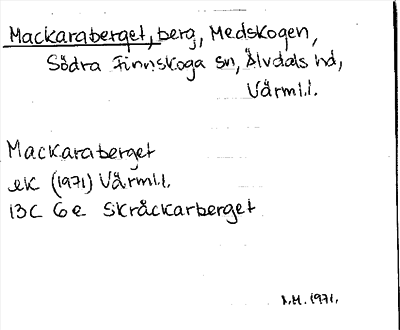 Mackaraberget, berg, Medskogen,
Södra Finnskoga sn, Älvdals hd,
Värml.l.
Mackaraberget
ek (1971) Värml.l.
13C 6e Skråckarberget
1971.